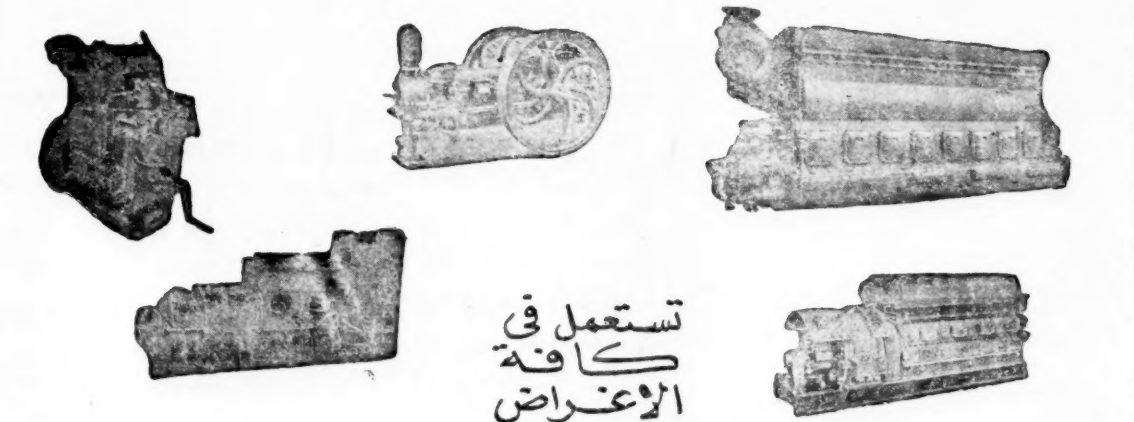 تستعمل فى
كافة
الأغراض